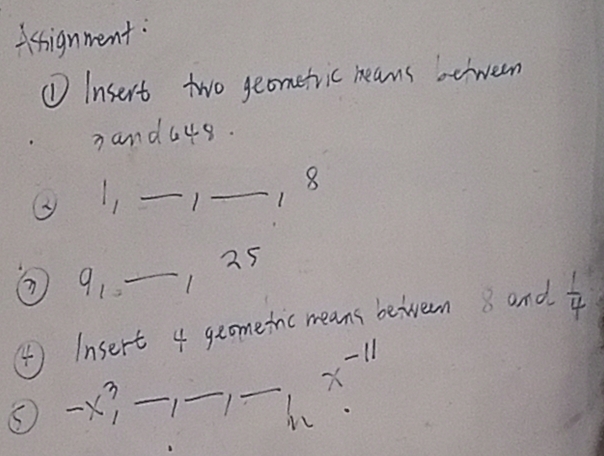 Assignment:
① Insert two geometric means between
3 and 648.
② 1, —, —, 8
③ 9, —, 25
④ Insert 4 geometric means between 8 and 1/4
⑤ -x³, —, —, —, x⁻¹¹